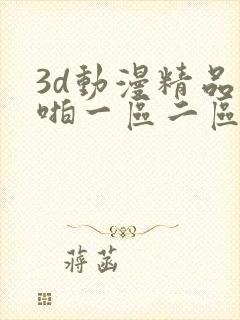 3d動漫精品
啪一區二區
蔣菡